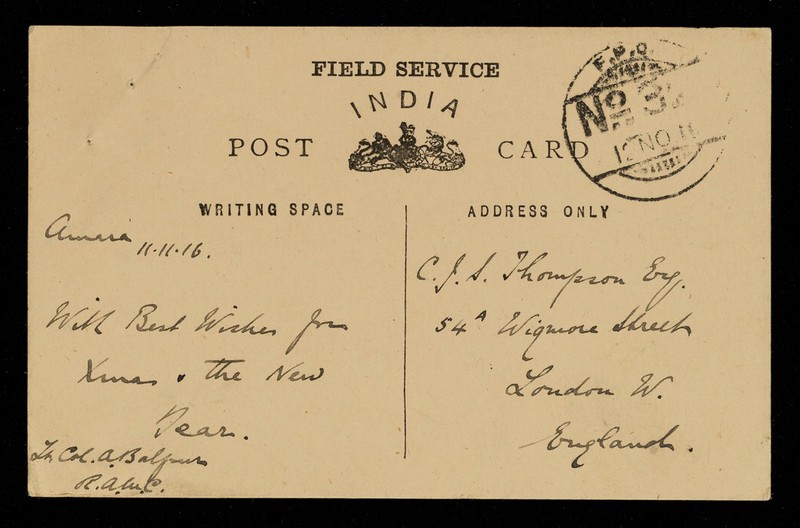 FIELD SERVICE
INDIA
POST CARD
F.P.O.
No. 3
12 NO 16
WRITING SPACE
ADDRESS ONLY
Amara
11.11.16.
With Best Wishes for
Xmas & the New
Year.
Lt Col. A. Balfour
R.A.M.C.
C. J. S. Thompson Esq.
54A Wigmore Street
London W.
England.